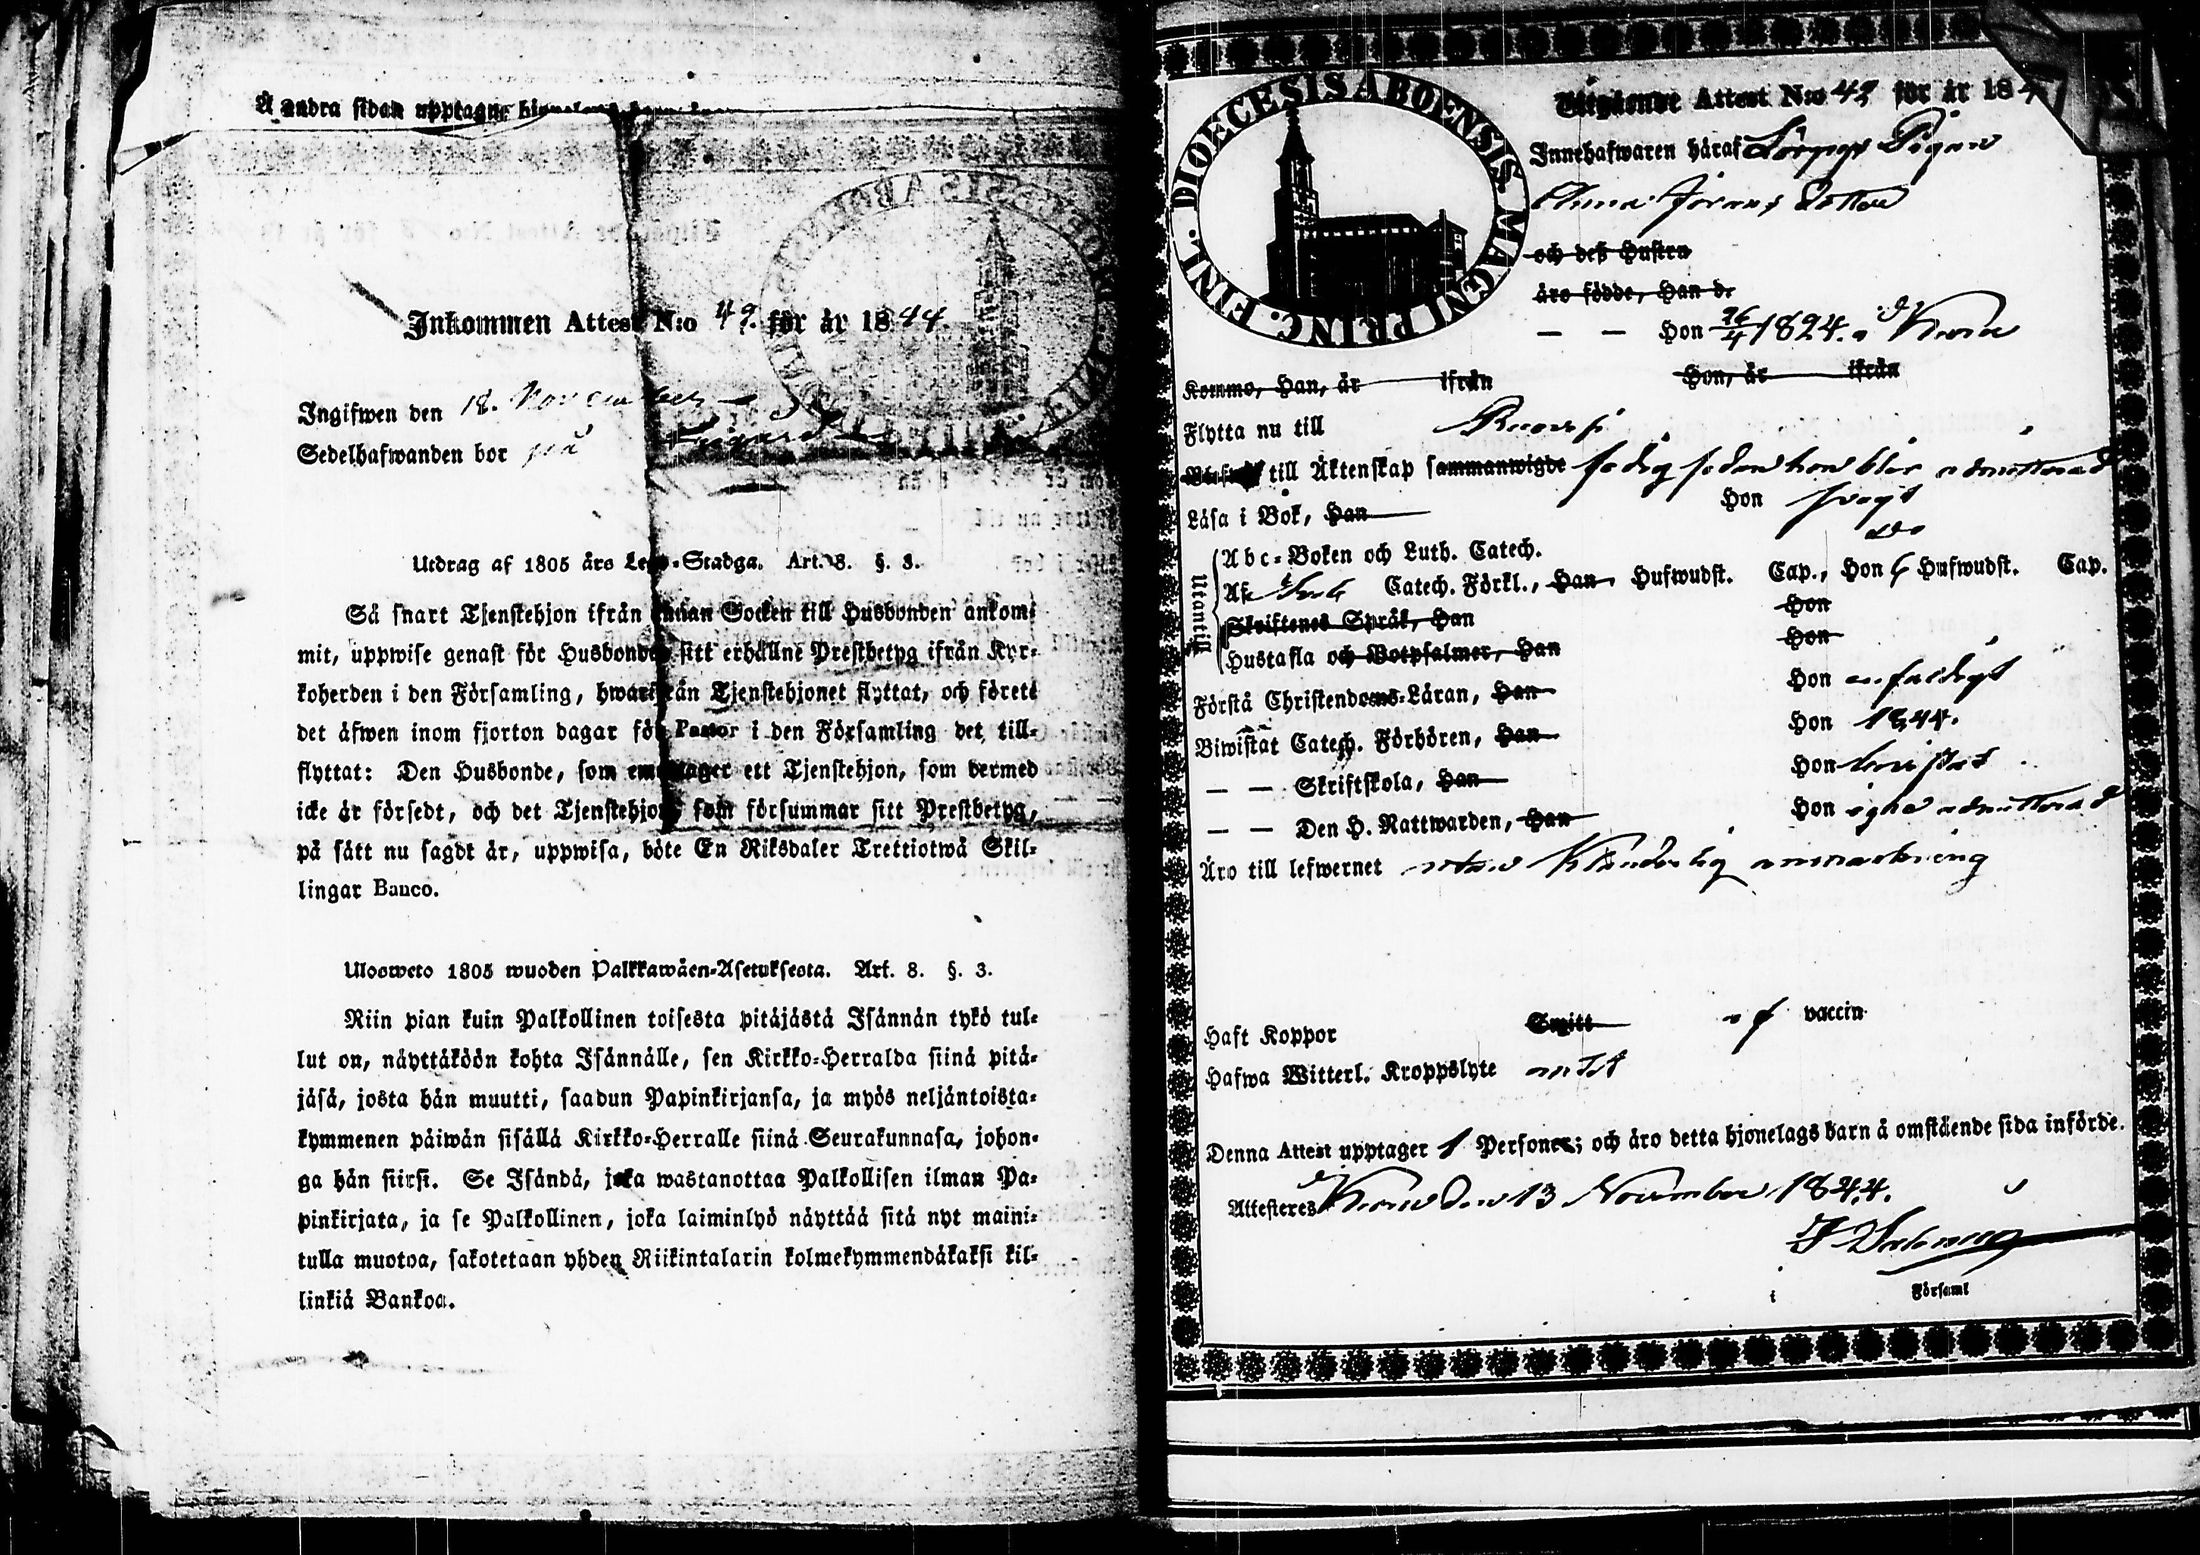 Å andra sidan upptagne
Inkommen Attest N:o 49. för år 1844.
Ingifwen den 18. November
Sedelhafwanden bor på
Utdrag af 1805 års Lego-Stadga. Art. 8. §. 3.
Så snart Tjenstehjon ifrån annan Socken till Husbonden ankom-
mit, uppwise genast för Husbonden sitt erhållne Prestbetyg ifrån Kyr-
koherden i den Församling, hwarifrån Tjenstehjonet flyttat, och förete
det äfwen inom fjorton dagar för Pastor i den Församling det till-
flyttat: Den Husbonde, som emottager ett Tjenstehjon, som dermed
icke är försedt, och det Tjenstehjon, som försummar sitt Prestbetyg,
på sätt nu sagdt är, uppwisa, böte En Riksdaler Trettiotwå Skil-
lingar Banco.
Uloosweto 1805 wuoden Palkkawäen-Asetuksesta. Art. 8. §. 3.
Niin pian kuin Palkollinen toisesta pitäjästä Isännän tykö tul-
lut on, näyttäköön kohta Isännälle, sen Kirkko-Herralda siinä pitä-
jäsä, josta hän muutti, saadun Papinkirjansa, ja myös neljäntoista-
kymmenen päiwän sisällä Kirkko-Herralle siinä Seurakunnasa, johon-
ga hän siirsi. Se Isändä, joka wastanottaa Palkollisen ilman Pa-
pinkirjata, ja se Palkollinen, joka laiminlyö näyttää sitä nyt maini-
tulla muotoa, sakotetaan yhden Riikintalarin kolmekymmendäkaksi kil-
linkiä Bankoa.
DIOECESIS ABOENSIS. MAGNI PRINC. FINL.
Utgående Attest N:o 49 för år 184
Innehafwaren häraf Pigan
Anna Jörans dotter
och deß Hustru
äro födde, Han d.
— — Hon 26/4 1824. i
Komma, Han, år ifrån Hon, år ifrån
Flytta nu till
till Äktenskap sammanwigde ledig sedan hon blir admitterad
Läsa i Bok, Han Hon svagt
Utantill
Abc-Boken och Luth. Catech. do
Af Catech. Förkl., Han Hufwudst. Cap., Hon 6 Hufwudst. Cap.
Skriftenes Språk, Han Hon
Hustafla och Botpsalmer, Han Hon
Förstå Christendoms-Läran, Han Hon enfaldigt
Biwistat Catech. Förhören, Han Hon 1844.
— — Skriftskola, Han Hon bevistat
— — Den H. Nattwarden, Han Hon admitterad
Äro till lefwernet utan Klanderlig anmärkning
Haft Koppor Smitt af vaccin
Hafwa Witterl. Kroppslyte intet
Denna Attest upptager 1 Personer; och äro detta hjonelags barn å omstående sida införde.
Attesteres den 13 November 1844.
i Församl